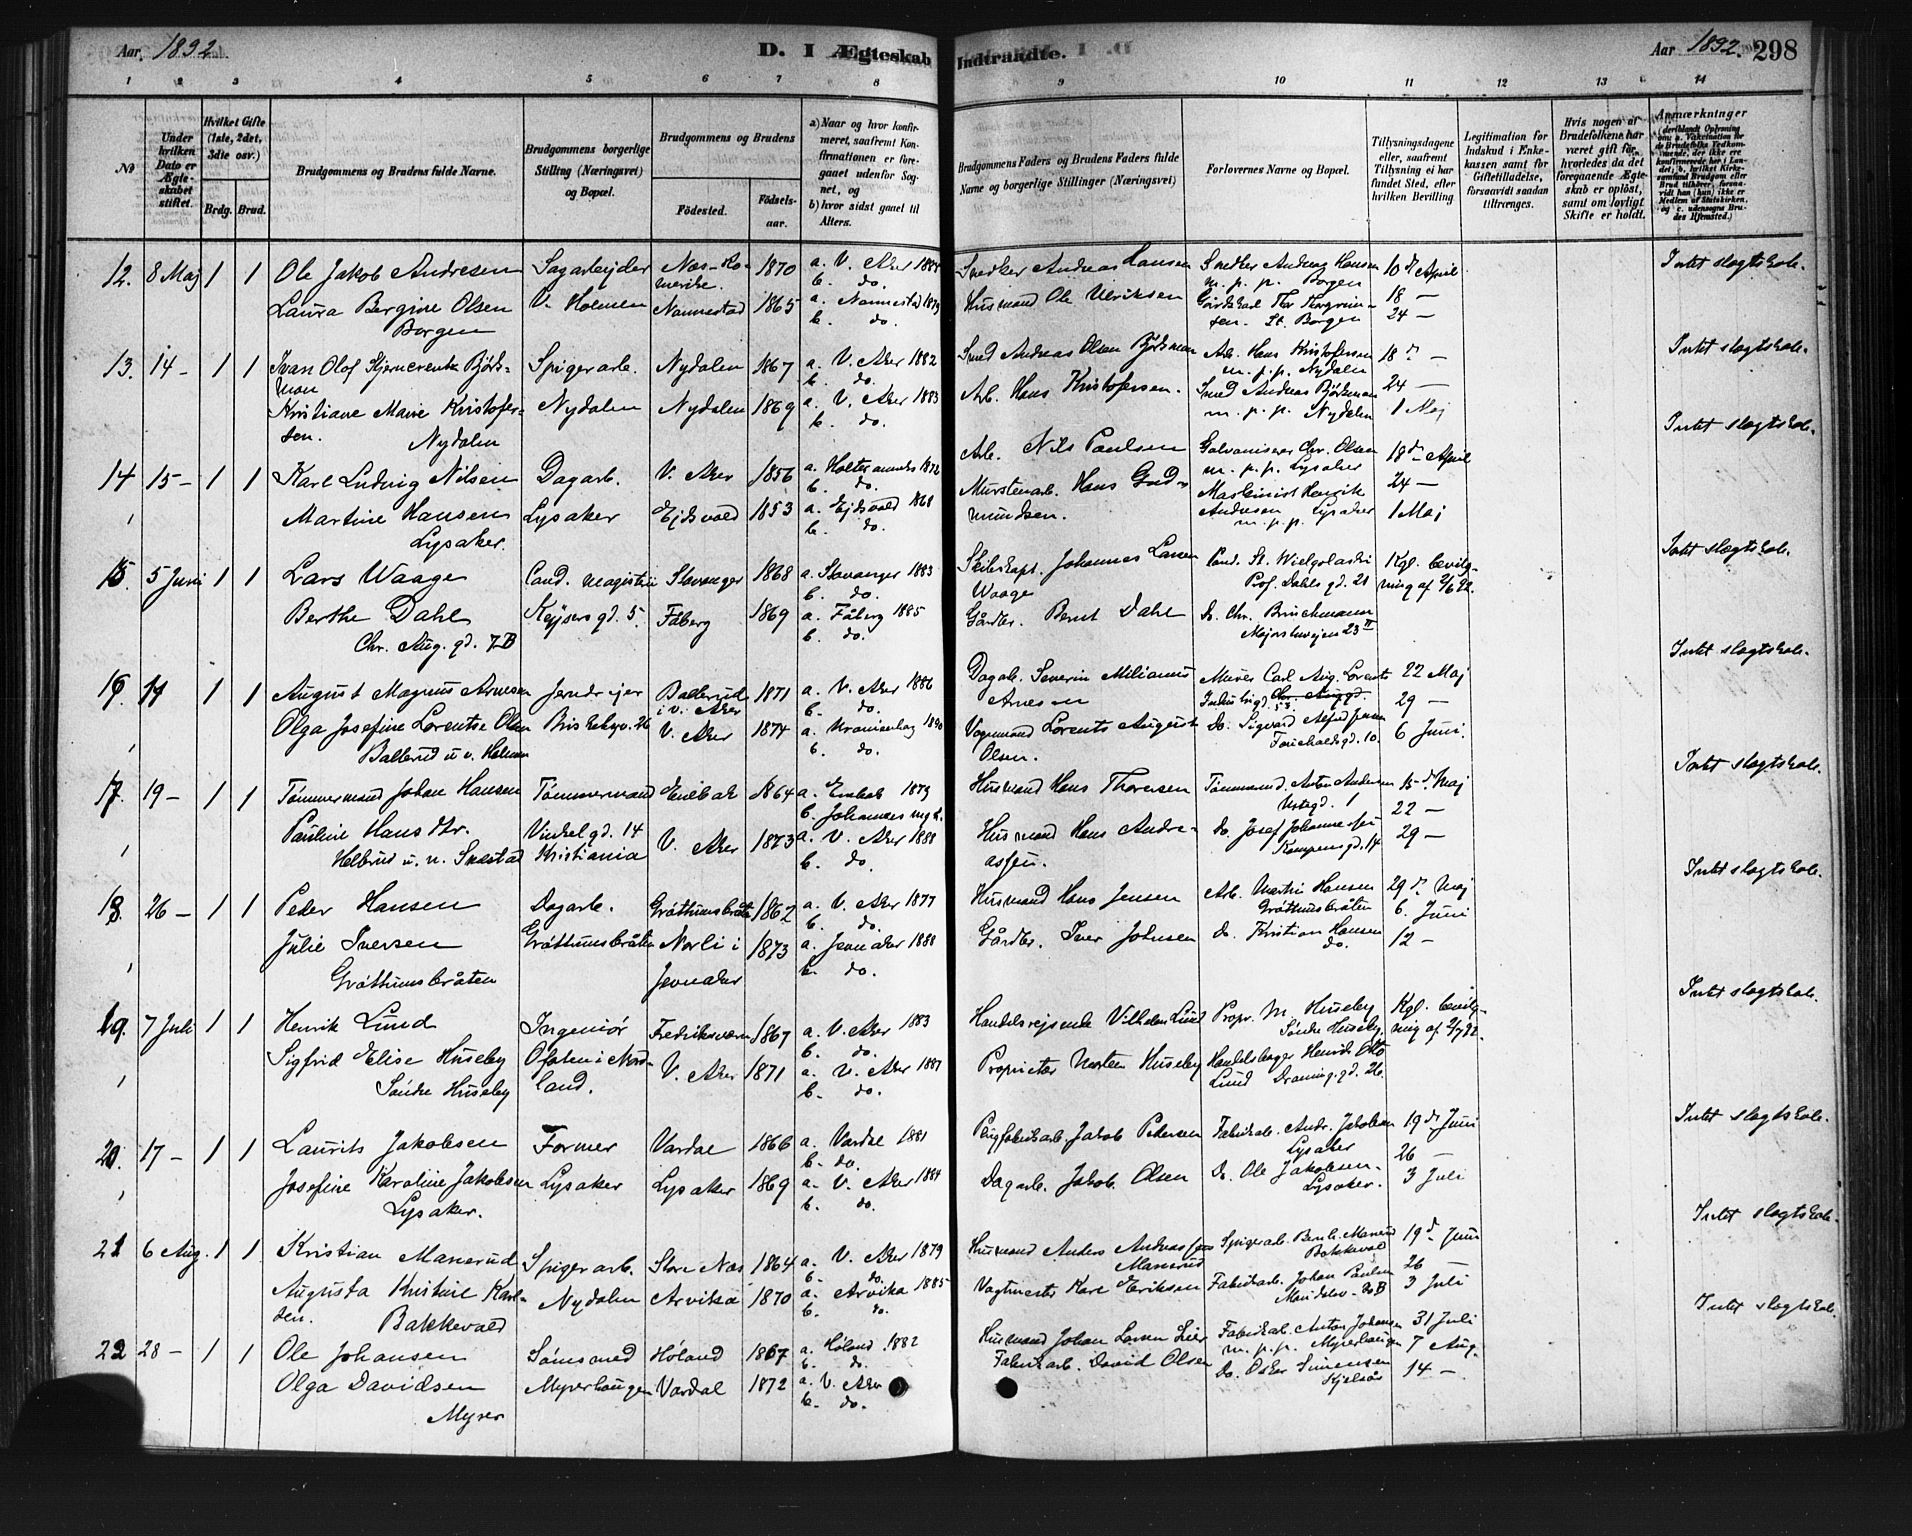 Aar 1892
D. I Ægteskab
Indtraadte.
Aar 1892. 298
1 2 3 4 5 6 7 8 9 10 11 12 13 14
No
Under hvilken Dato er Ægteskabet stiftet.
Hvilket Gifte (1ste, 2det, 3die osv.)
Brdg. Brud.
Brudgommens og Brudens fulde Navne.
Brudgommens borgerlige Stilling (Næringsvei) og Bopæl.
Brudgommens og Brudens
Fødested.
Fødselsaar.
a) Naar og hvor konfirmeret, saafremt Konfirmationen er foregaaet udenfor Sognet, og
b) hvor sidst gaaet til Alters.
Brudgommens Faders og Brudens Faders fulde Navne og borgerlige Stillinger (Næringsvei)
Forlovernes Navne og Bopæl.
Tillysningsdagene eller, saafremt Tillysning ei har fundet Sted, efter hvilken Bevilling
Legitimation for Indskud i Enkekassen samt for Giftetilladelse, forsaavidt saadan tiltrænges.
Hvis nogen af Brudefolkene har været gift før, hvorledes da det foregaaende Ægteskab er opløst, samt om lovligt Skifte er holdt.
Anmærkninger
12. 8 Maj 1 1 Ole Jakob Andresen Sagarbejder Næs-Romerike. 1870 a. V. Aker b. do. Snedker Andreas Hansen Snedker Andreas Hansen m.p.p. Borgen 10 April Intet slægtskab.
Laura Bergine Olsen V. Holmen Nannestad 1865 a. Nannestad 1879 b. do. Husmand Ole Ulriksen St. Borgen 18 —
Borgen 24 —
13. 14 - 1 1 Ivan Olof Bjørkman Spigerarb. Nydalen 1867 a. V. Aker 1882 b. do. Smed Andreas Olsen Bjørkman Arb. Hans Kristofersen m.p.p. Nydalen 18 — Intet slægtskab.
Kristiane Marie Kristofersen. Nydalen Nydalen 1869 a. V. Aker 1883 b. do. Arb. Hans Kristofersen. Smed Andreas Bjørkman m.p.p. Nydalen 24 —
Nydalen 1 Maj
14 15 - 1 1 Karl Ludvig Nilsen Dagarb. V. Aker 1856 b. do. Arb. Nils Paulsen Galvaniserer Chr. Olsen m.p.p. Lysaker 18 April Intet slægtskab.
Martine Hansen Lysaker Ejdsvold 1853 a. Ejdsvold 1868 b. do. Murstenarb. Hans Gudmundsen. Maskinist Henrik Andersen m.p.p. Lysaker 24 —
Lysaker. 1 Maj
15. 5 Juni 1 1 Lars Waage Cand. magisterii Stavanger 1868 a. Stavanger 1883 b. do. Skibskapt. Johannes Larsen Waage Cand. St. Wielgolaski Prof. Dahls gd. 21 Kgl. bevilgning af 2/6 92. Intet slægtskab.
Berthe Dahl Keysersgd. 5. Fåberg 1869 a. Fåberg 1885 b. do. Gårdbr. Bernt Dahl Do. Chr. Brinchmann Majorstuvejen 23 II
Chr. Aug. gd. 7B
16. 19 1 1 August Magnus Arnesen Jerndrejer Ballerud i V. Aker 1871 a. V. Aker 1886 b. do. Dagarb. Severin Milianus Arnesen Murer Carl Aug. Lorents 22 Maj Intet slægtskab.
Olga Josefine Lorentse Olsen Briskebyv. 26 V. Aker 1874 a. Uranienborg 1890 b. do. Vognmand Lorents August Olsen. Do. Sigvard Alfred Jensen 29 —
Ballerud u. v. Holmen 6 Juni.
17. 19 - 1 1 Tømmermand Johan Hansen Tømmermand Enebak 1864 a. Enebak 1879 b. Johannes mgh. Husmand Hans Thoresen Tømmermd. Anton Andersen 1 15 Maj Intet slægtskab.
Pauline Hansdtr. Vinkelgd. 14 Kristiania V. Aker 1873 a. V. Aker 1888 b. do. Husmand Hans Andreassen. Do. Josef Johannesen Kampensgd. 14 22 —
29 —
18. 26 - 1 1 Peder Hansen Dagarb. Grøthumsbråten 1862 a. V. Aker 1877 b. do. Husmand Hans Jensen Arb. Martin Hansen Grøthumsbråten 29 Maj Intet slægtskab.
Julie Iversen Grøthumsbråten Norli i Jevnaker 1873 a. Jevnaker 1888 b. do. Gårdbr. Iver Johnsen Do. Kristian Hansen do. 6. Juni
Grøthumsbråten 12 —
19. 7 Juli 1 1 Henrik Lund Ingeniør Fredriksværn 1867 a. V. Aker 1883 b. do. Handelsrejsende Vilhelm Lund Propr. M. Huseby Søndre Huseby. Kgl. bevilgning af 2/7 92. Intet slægtskab.
Sigfrid Elise Huseby Ofoten i Nordland. V. Aker 1871 a. V. Aker 1887 b. do. Proprietær Morten Huseby Handelsborger Henrik Otto Lund Dronning.gd. 26.
Søndre Huseby
20. 17 - 1 1 Laurits Jakobsen Former Vardal 1866 a. Vardal 1881 b. do. Jakob Pedersen Fabrikarb. Andr. Jakobsen Lysaker 19 Juni Intet slægtskab.
Josefine Karoline Jakobsen Lysaker Lysaker 1869 a. V. Aker 1884 b. do. Dagarb. Jakob Olsen Do. Ole Jakobsen. Lysaker. 26 —
Lysaker. 3 Juli
21 6 Aug. 1 1 Kristian Manerud Spigerarb. Store Næs 1864 a. V. Aker 1879 b. do. Husmand Anders Andreassen Manerud Spigerarb. Bernh. Manerud Bakkevold 19 Juni Intet slægtskab.
Augusta Kristine Karlsen. Nydalen Arvika 1870 a. Arvika 1885 b. do. Vagtmester Karl Eriksen Fabrikarb. Johan Paulsen 26 —
Bakkevold 3 Juli
22 28 - 1 1 Ole Johansen Sømsmed Høland 1867 a. Høland 1882 b. do. Husmand Johan Larsen Lier Fabrikarb. Anton Johansen m.p.p. Myrerhaugen 31 Juli Intet slægtskab
Olga Davidsen Myrerhaugen Vardal 1872 a. V. Aker b. do. Fabrikarb. David Olsen Do. Oskar Simensen Kjelsås 7 Aug.
Myrer 14 —